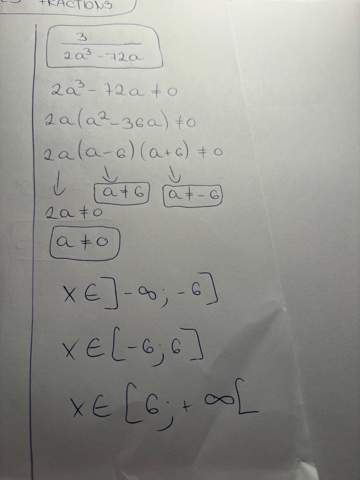 FRACTIONS
3
2a³-72a
2a³-72a≠0
2a(a²-36a)≠0
2a(a-6)(a+6)≠0
↓ ↘ ↘
a≠6 a≠-6
2a≠0
a≠0
x∈]-∞;-6]
x∈[-6;6]
x∈[6;+∞[